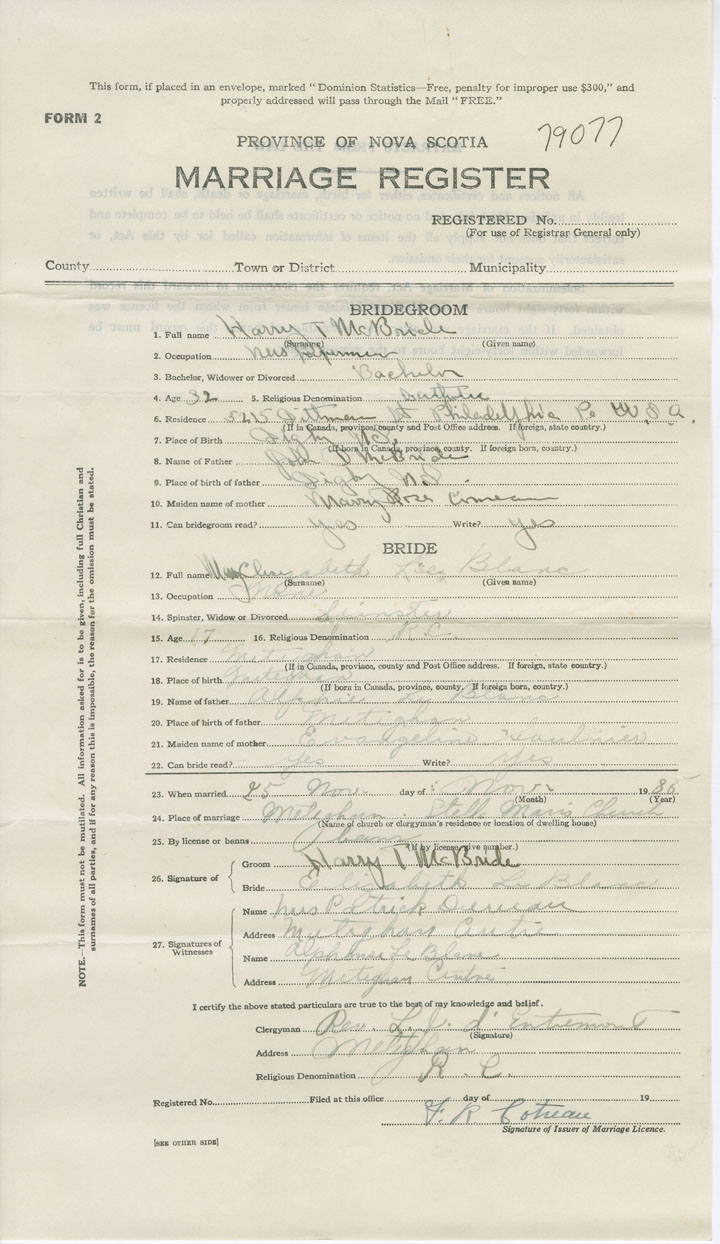 This form, if placed in an envelope, marked "Dominion Statistics—Free, penalty for improper use $300," and
properly addressed will pass through the Mail "FREE."
FORM 2
79077
PROVINCE OF NOVA SCOTIA
MARRIAGE REGISTER
REGISTERED No.
(For use of Registrar General only)
County Town or District Municipality
BRIDEGROOM
1. Full name Harry T McBride
(Surname) (Given name)
2. Occupation
3. Bachelor, Widower or Divorced Bachelor
4. Age 32 5. Religious Denomination Catholic
6. Residence 5215 Dittman St Philadelphia Pe U S A.
(If in Canada, province, county and Post Office address. If foreign, state country.)
7. Place of Birth Digby N.S.
(If born in Canada, province, county. If foreign born, country.)
8. Name of Father John McBride
9. Place of birth of father Digby N.S.
10. Maiden name of mother Rose Comeau
11. Can bridegroom read? Yes Write? Yes
BRIDE
12. Full name Le Blanc
(Surname) (Given name)
13. Occupation None
14. Spinster, Widow or Divorced Spinster
15. Age 17 16. Religious Denomination R.C.
17. Residence Meteghan
(If in Canada, province, county and Post Office address. If foreign, state country.)
18. Place of birth Meteghan
(If born in Canada, province, county. If foreign born, country.)
19. Name of father Alphonse Le Blanc
20. Place of birth of father Meteghan
21. Maiden name of mother Evangeline Saulnier
22. Can bride read? Yes Write? Yes
23. When married 25 Nov. day of Nov. 1935
(Month) (Year)
24. Place of marriage Meteghan. Stella Maris Church
(Name of church or clergyman's residence or location of dwelling house)
25. By license or banns
(If by license, give number.)
26. Signature of
Groom Harry T McBride
Bride Elizabeth Le Blanc
27. Signatures of Witnesses
Name Mrs Patrick
Address Meteghan Centre
Name Alphonse Le Blanc
Address Meteghan Centre
I certify the above stated particulars are true to the best of my knowledge and belief.
Clergyman Rev. d'Entremont
(Signature)
Address Meteghan
Religious Denomination R. C.
Registered No. Filed at this office day of 19
F. R. Cotreau
Signature of Issuer of Marriage Licence.
[SEE OTHER SIDE]
NOTE.—This form must not be mutilated. All information asked for is to be given, including full Christian and
surnames of all parties, and if for any reason this is impossible, the reason for the omission must be stated.